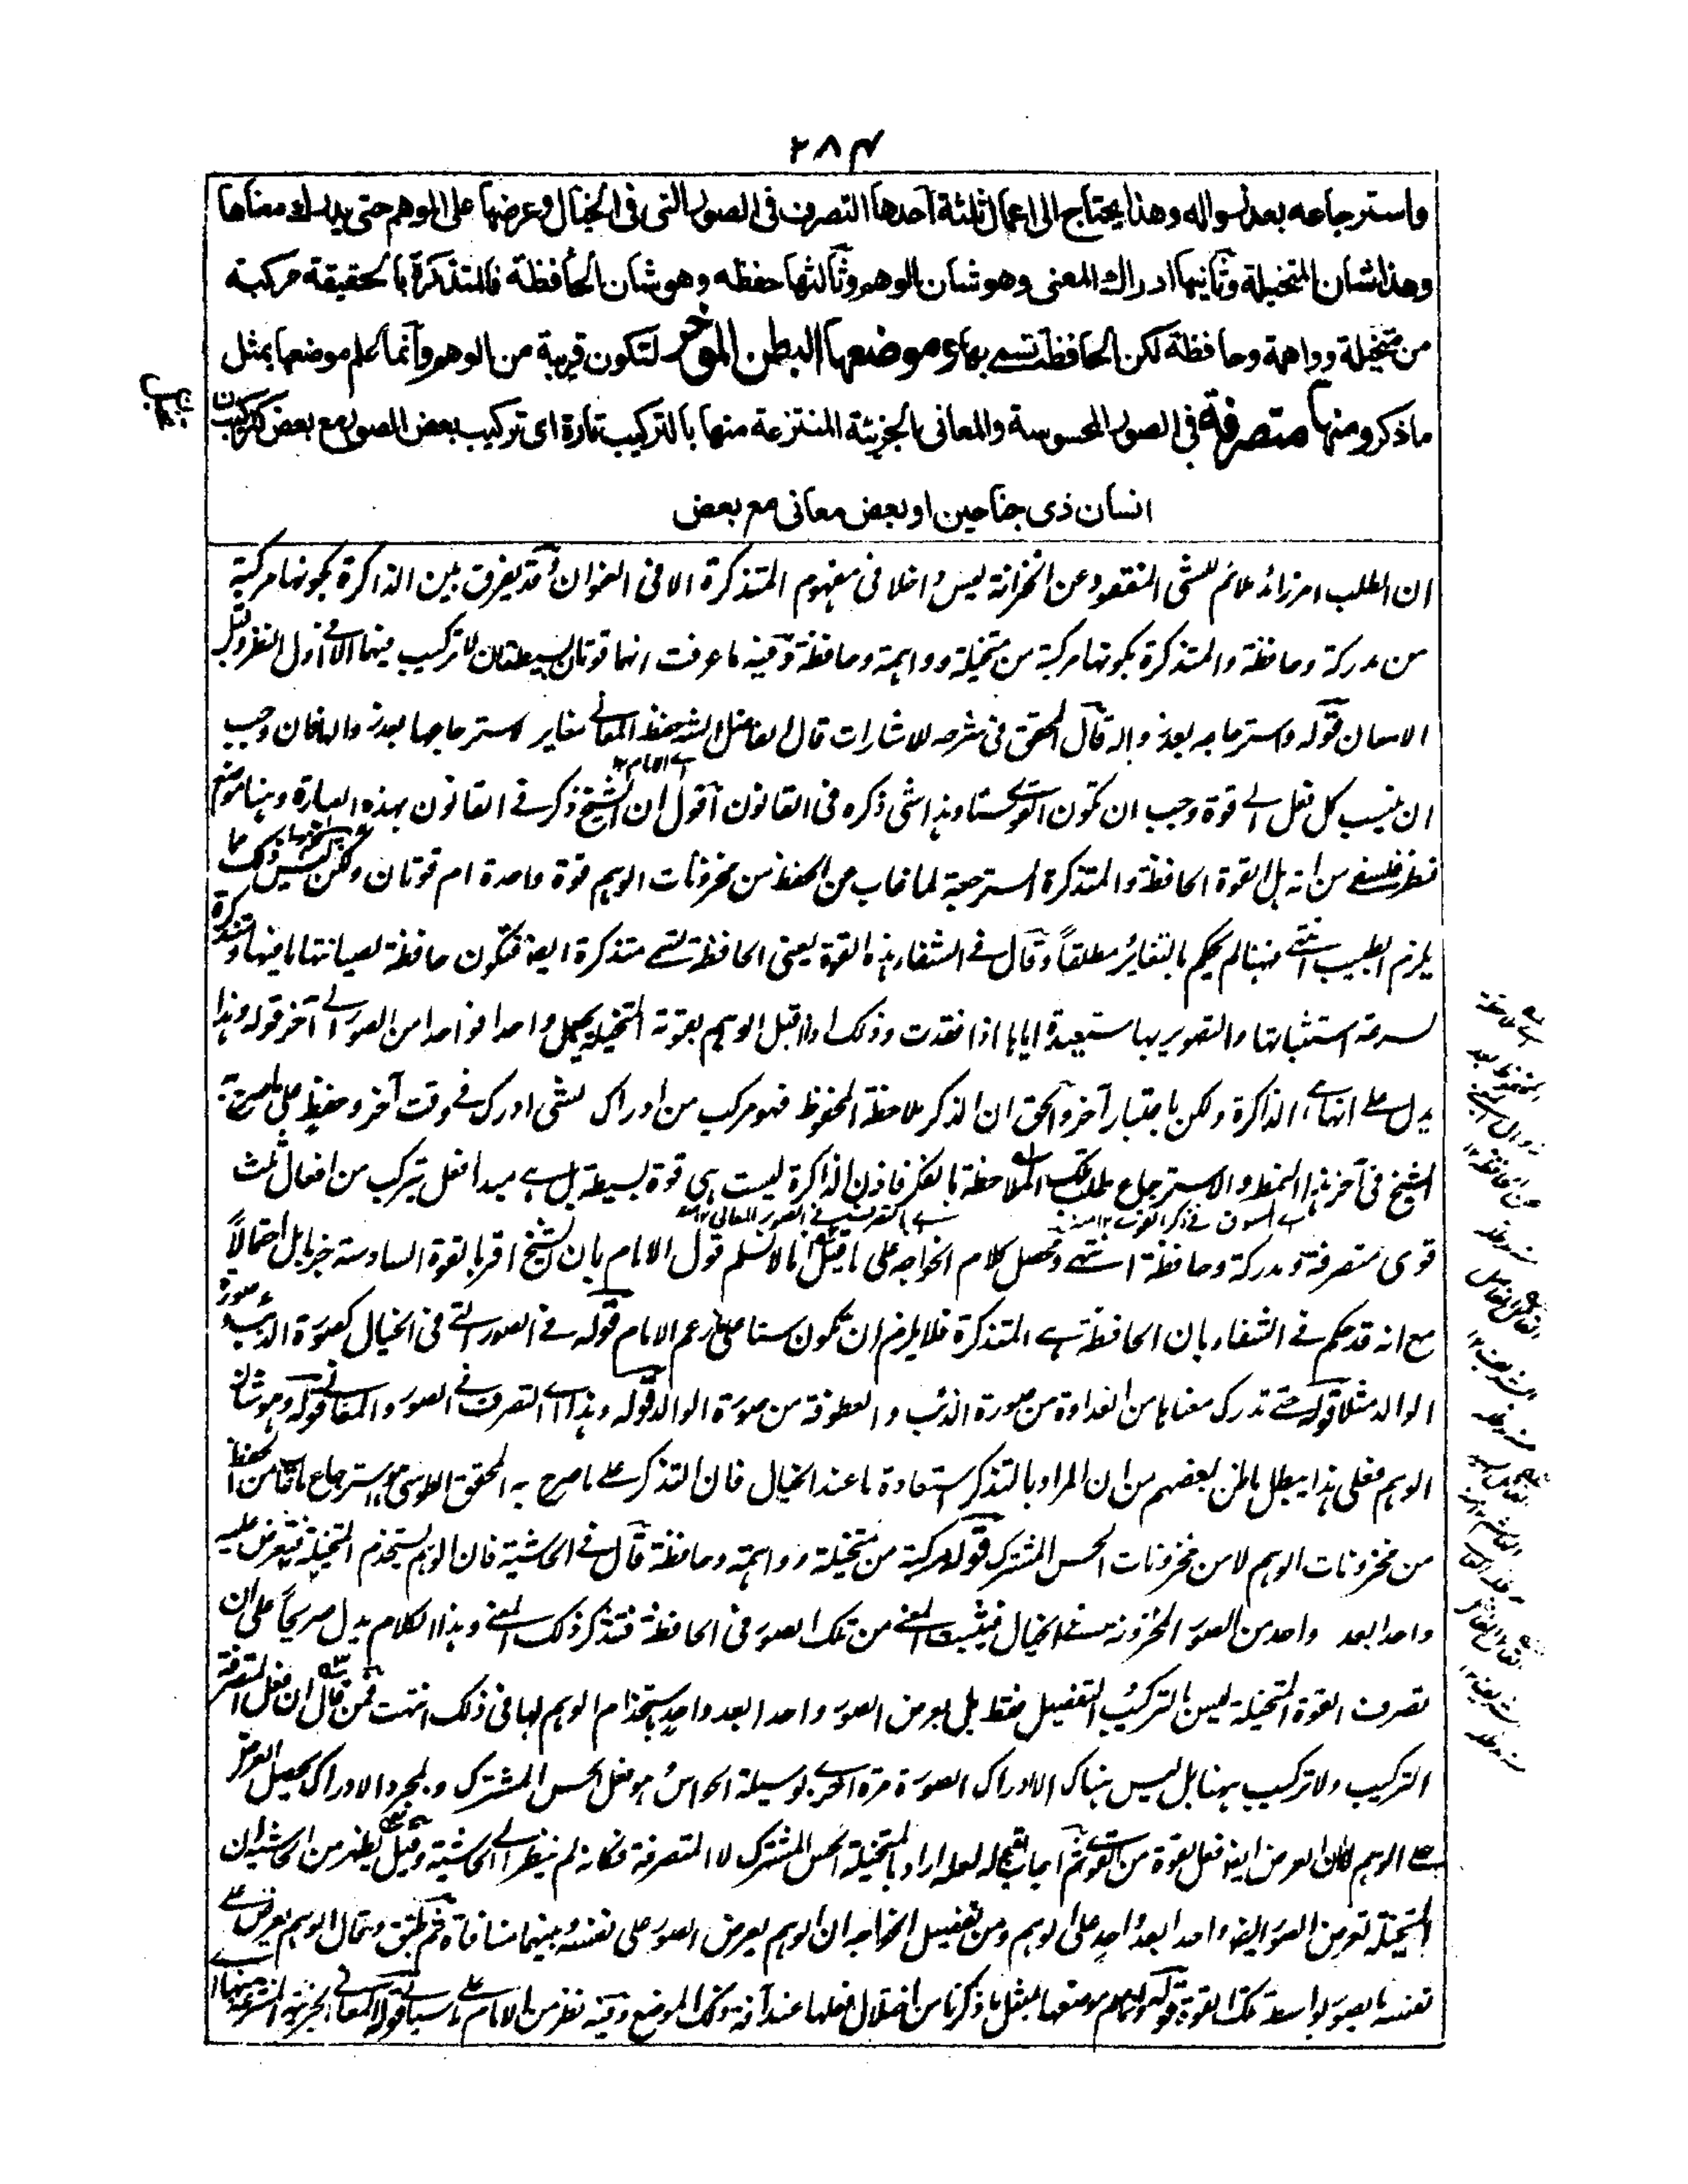 ٢٨٤
واسترجاعه بعد زواله وهذا يحتاج الى اعمال ثلثة آحدها التصرف فى الصور التى فى الخيال وعرضها على الوهم حتى يدرك معناها
وهذا شان المتخيلة وثانيها ادراك المعنى وهو شان الوهم وثالثها حفظه وهو شان الحافظة فالمتذكرة بالحقيقة مركبة
من متخيلة وواهمة وحافظة لكن الحافظة تسمى بها وموضعها البطن المؤخر لتكون قريبة من الوهم وآنما علم موضعها بمثل
ما ذكر ومنها متصرفة فى الصور المحسوسة والمعانى الجزئية المنتزعة منها بالتركيب تارة اى تركيب بعض الصور مع بعض كتركيب
انسان ذى جناحين او بعض معانى مع بعض
ان الطلب امر زائد ملائم للشئ المفقود عن الخزانة ليس داخلا فى مفهوم المتذكرة الا فى العنوان وقد يفرق بين الذاكرة بكونها مركبة
من مدركة وحافظة والمتذكرة بكونها مركبة من متخيلة وواهمة وحافظة وفيه ما عرفت انهما قوتان بسيطتان لا تركيب فيهما الا فى اول النظر وقبل
الامعان قوله واسترجاعه بعد زواله قال المحقق فى شرحه للاشارات قال الفاضل الشارح حفظ المعانى مغاير لاسترجاعها بعد زوالها فان وجب
ان ينسب كل فعل الى قوة وجب ان تكون القوى ستا وهذا شئ ذكره فى القانون آقول ان الشيخ ذكر فى القانون بهذه العبارة وههنا موضع
نظر فلسفى من انه هل القوة الحافظة والمتذكرة المسترجعة لما غاب من الحفظ من مخزونات الوهم قوة واحدة ام قوتان ولكن ليس ذلك مما
يلزم الطبيب انتهى فههنا لم يحكم بالتغاير مطلقاً وقال فى الشفاء هذه القوة يعنى الحافظة تسمى متذكرة ايضا فتكون حافظة لصيانتها ما فيها ومتذكرة
لسرعة استثباتها والتصوير بها مستعيدة اياها اذا فقدت وذلك اذا اقبل الوهم بقوته المتخيلة يجعل واحدا فواحدا من الصور الى آخر قوله وهذا
يدل على انها هى الذاكرة ولكن باعتبار آخر والحق ان الذكر ملاحظة المحفوظ فهو مركب من ادراك لشئ ادرك فى وقت آخر وحفظ على ما صرح به
الشيخ فى آخر هذا النمط والاسترجاع طلب تلك الملاحظة بالفكر فاذن الذاكرة ليست هى قوة بسيطة بل هى مبدأ فعل يتركب من افعال ثلث
قوى متصرفة ومدركة وحافظة انتهى ومحصل كلام الخواجه على ما قيل انا لا نسلم قول الامام بان الشيخ اقر بالقوة السادسة جزما بل احتمالاً
مع انه قد حكم فى الشفاء بان الحافظة هى المتذكرة فلا يلزم ان تكون ستا على زعم الامام قوله فى الصور التى فى الخيال كصورة الذئب وصورة
الوالد مثلا قوله حتى تدرك معناها من العداوة من صورة الذئب والعطوفة من صورة الوالد قوله وهذا اى التصرف فى الصور والمعانى قوله وهو شان
الوهم فعلى هذا يبطل ما ظن بعضهم من ان المراد بالتذكر استعادة ما عند الخيال فان التذكر على ما صرح به المحقق الطوسى هو استرجاع ما غاب من الحفظ
من مخزونات الوهم لا من مخزونات الحس المشترك قوله مركبة من متخيلة وواهمة وحافظة قال فى الحاشية فان الوهم يستخدم المتخيلة فتعرض عليه
واحدا بعد واحد من الصور المخزونة فى الخيال فيثبت المعنى من تلك الصور فى الحافظة فتذكر ذلك المعنى وهذا الكلام يدل صريحاً على ان
تصرف القوة المتخيلة ليس بالتركيب والتفصيل فقط بل بعرض الصور واحدا بعد واحد باستخدام الوهم لها فى ذلك انتهت فمن قال ان فعل المتصرفة
التركيب ولا تركيب ههنا بل ليس هناك الا ادراك الصورة مرة اخرى بوسيلة الحواس هو فعل الحس المشترك وبمجرد الادراك يحصل العرض
على الوهم لان العرض ايضا فعل لقوة من القوى ثم اجاب له لعله اراد بالمتخيلة الحس المشترك لا المتصرفة فكانه لم ينظر الى الحاشية وقيل يظهر من الحاشية ان
المتخيلة تعرض الصور ايضا واحدا بعد واحد على الوهم ومن تفصيل الخواجه ان الوهم يعرض الصور على نفسه وبينهما منافاة وقال الوهم يعرض على
نفسه بالصور بواسطة تلك القوة قوله وانما علم موضعها بمثل ما ذكرنا من اختلال فعلها عند آفة ذلك الموضع وفيه نظر من الامام على ما سياتى قوله والمعانى الجزئية المنتزعة منها